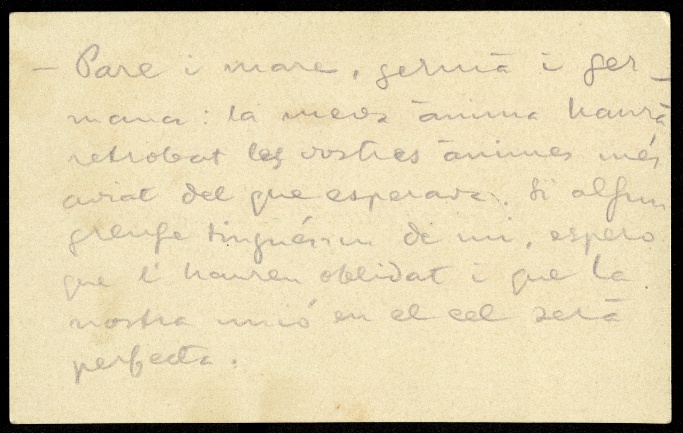 — Pare i mare, germà i ger-
mana: la meva ànima haurà
retrobat les vostres ànimes més
aviat del que esperava. Si algun
greuge tinguéssiu de mi, espero
que l'haureu oblidat i que la
nostra unió en el cel serà
perfecta.